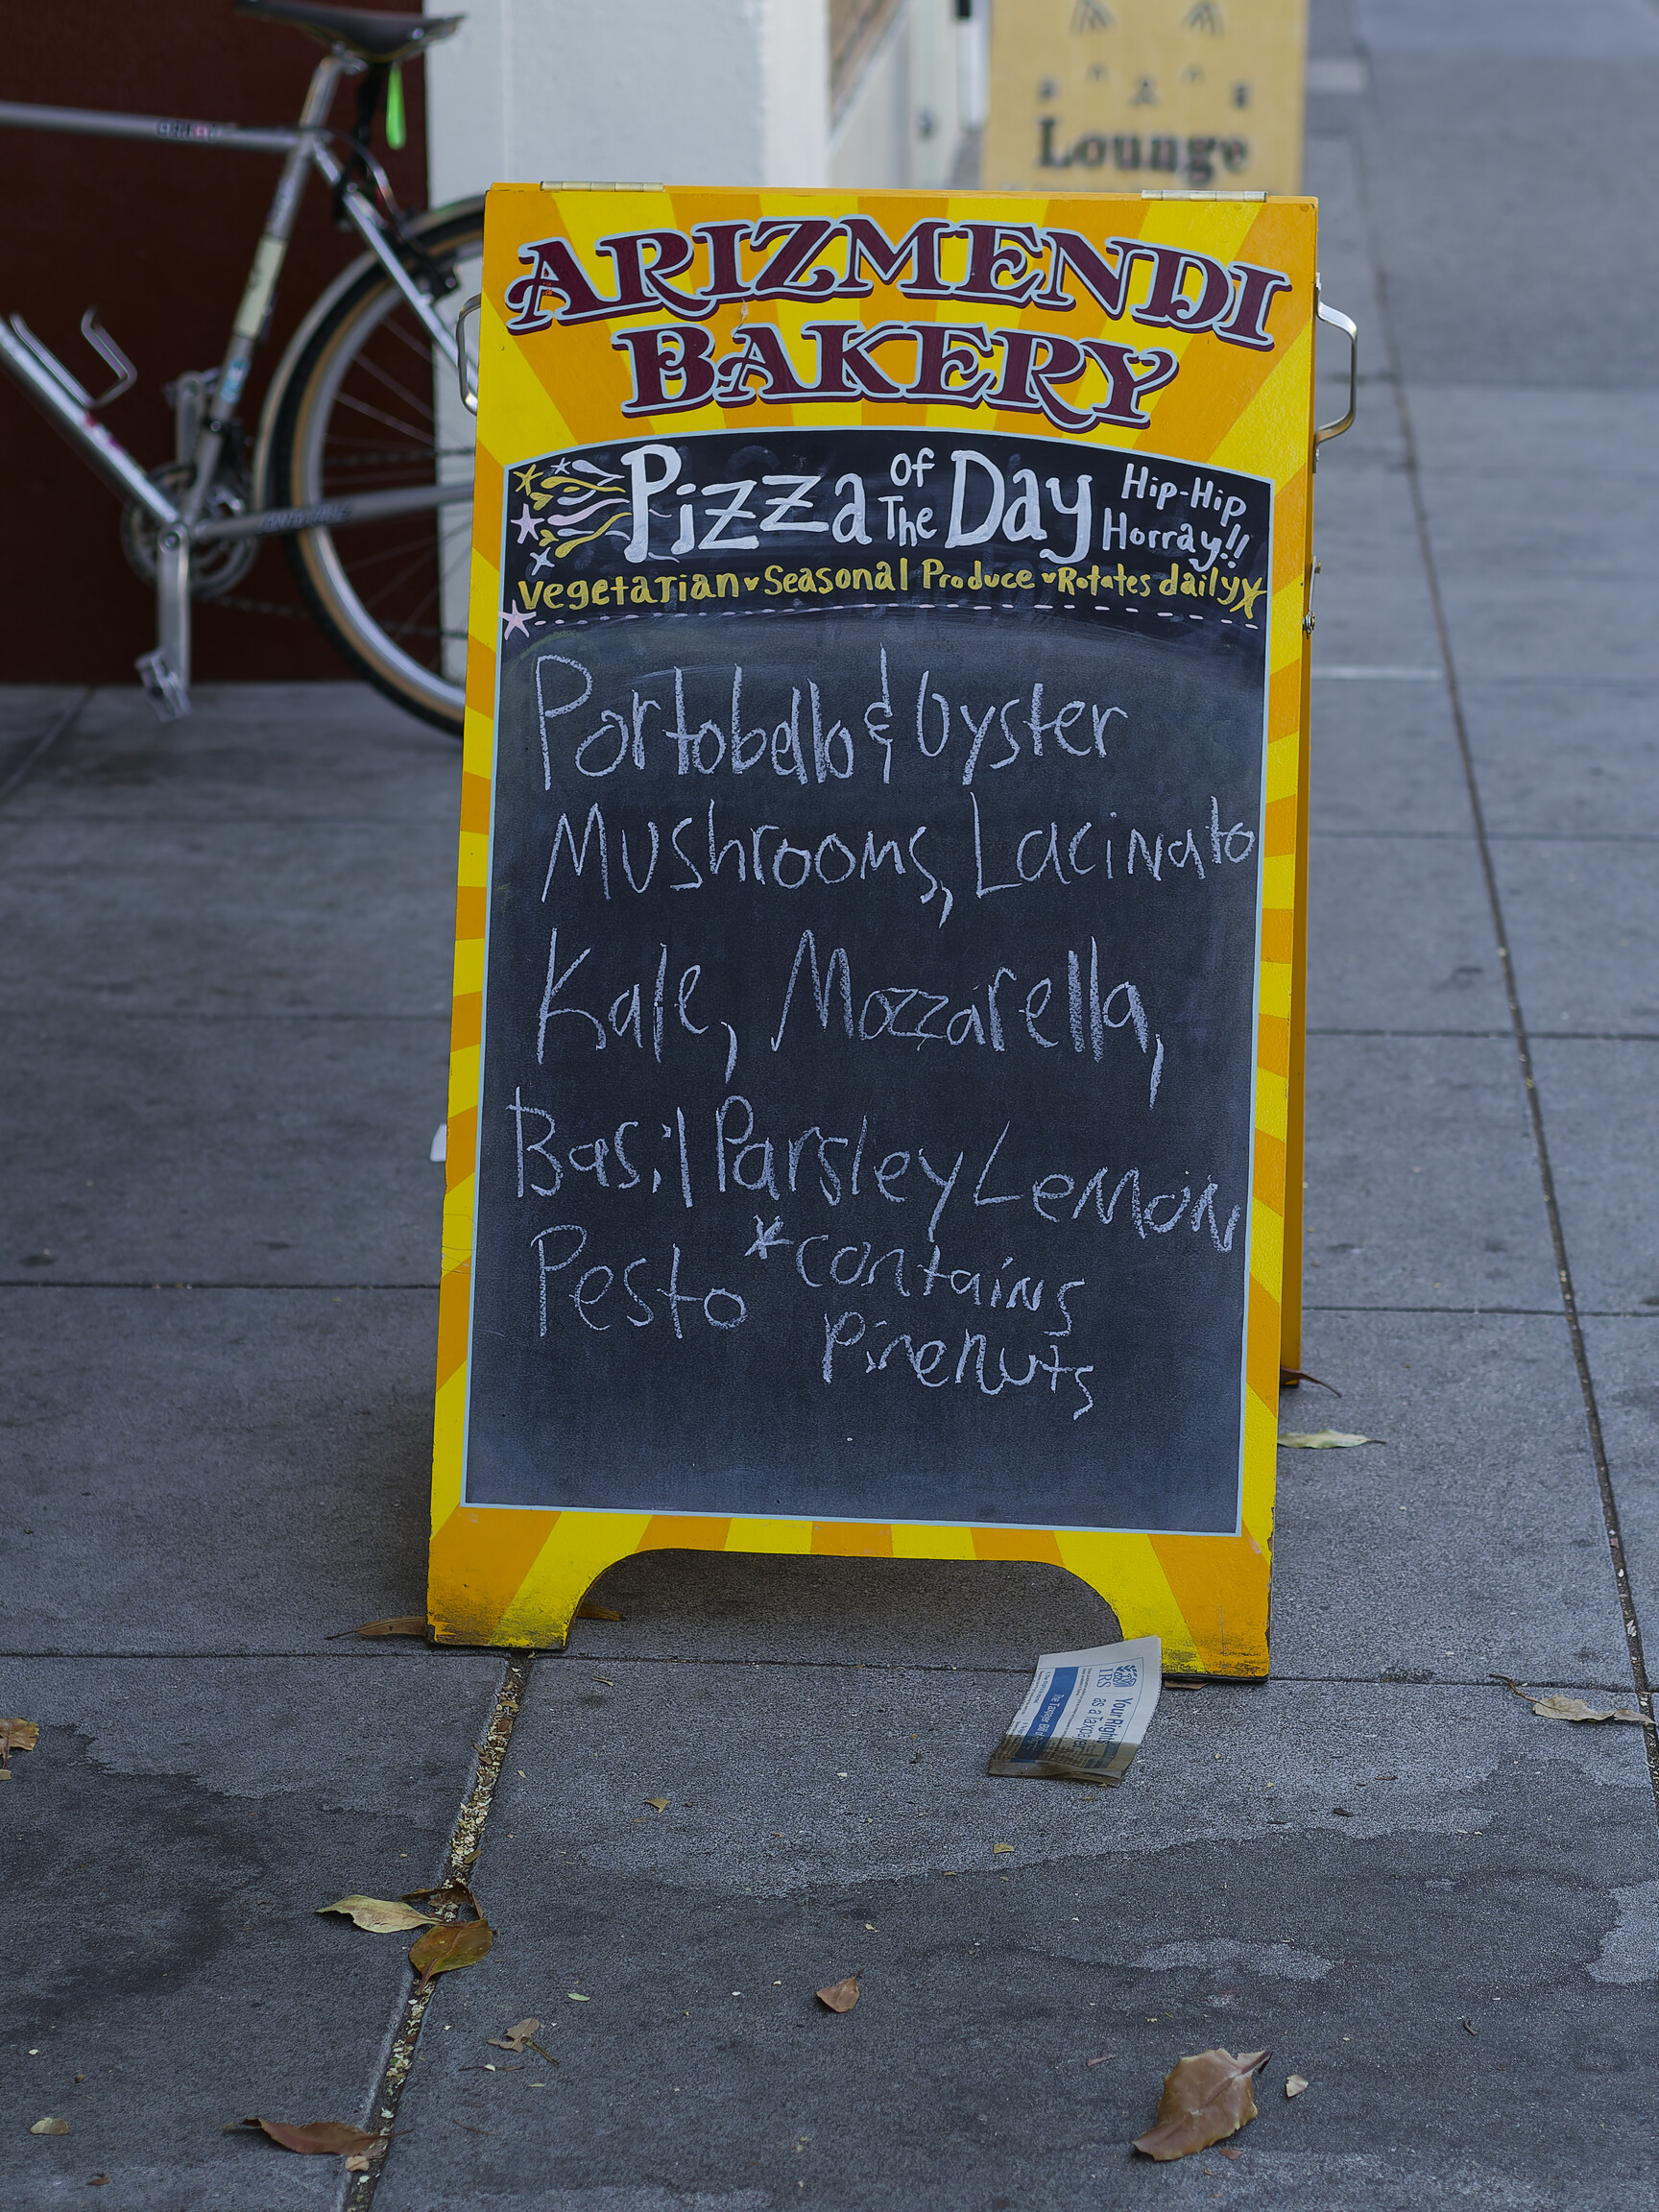 Lounge
ARIZMENDI
BAKERY
Pizza of The Day Hip-Hip Horray!!
Vegetarian Seasonal Produce Rotates daily
Portobello & Oyster
Mushrooms, Lacinato
Kale, Mozzarella,
Basil Parsley Lemon
Pesto *contains
Pinenuts
IRS
Your Rights
as a Taxpayer